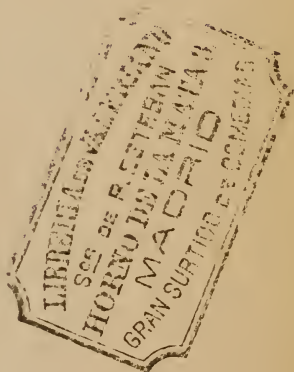 LIBRERIA DE
Sor DE R. ESTEBAN
HORNO DE LA MATA
MADRID
GRAN SURTIDO DE COMEDIAS